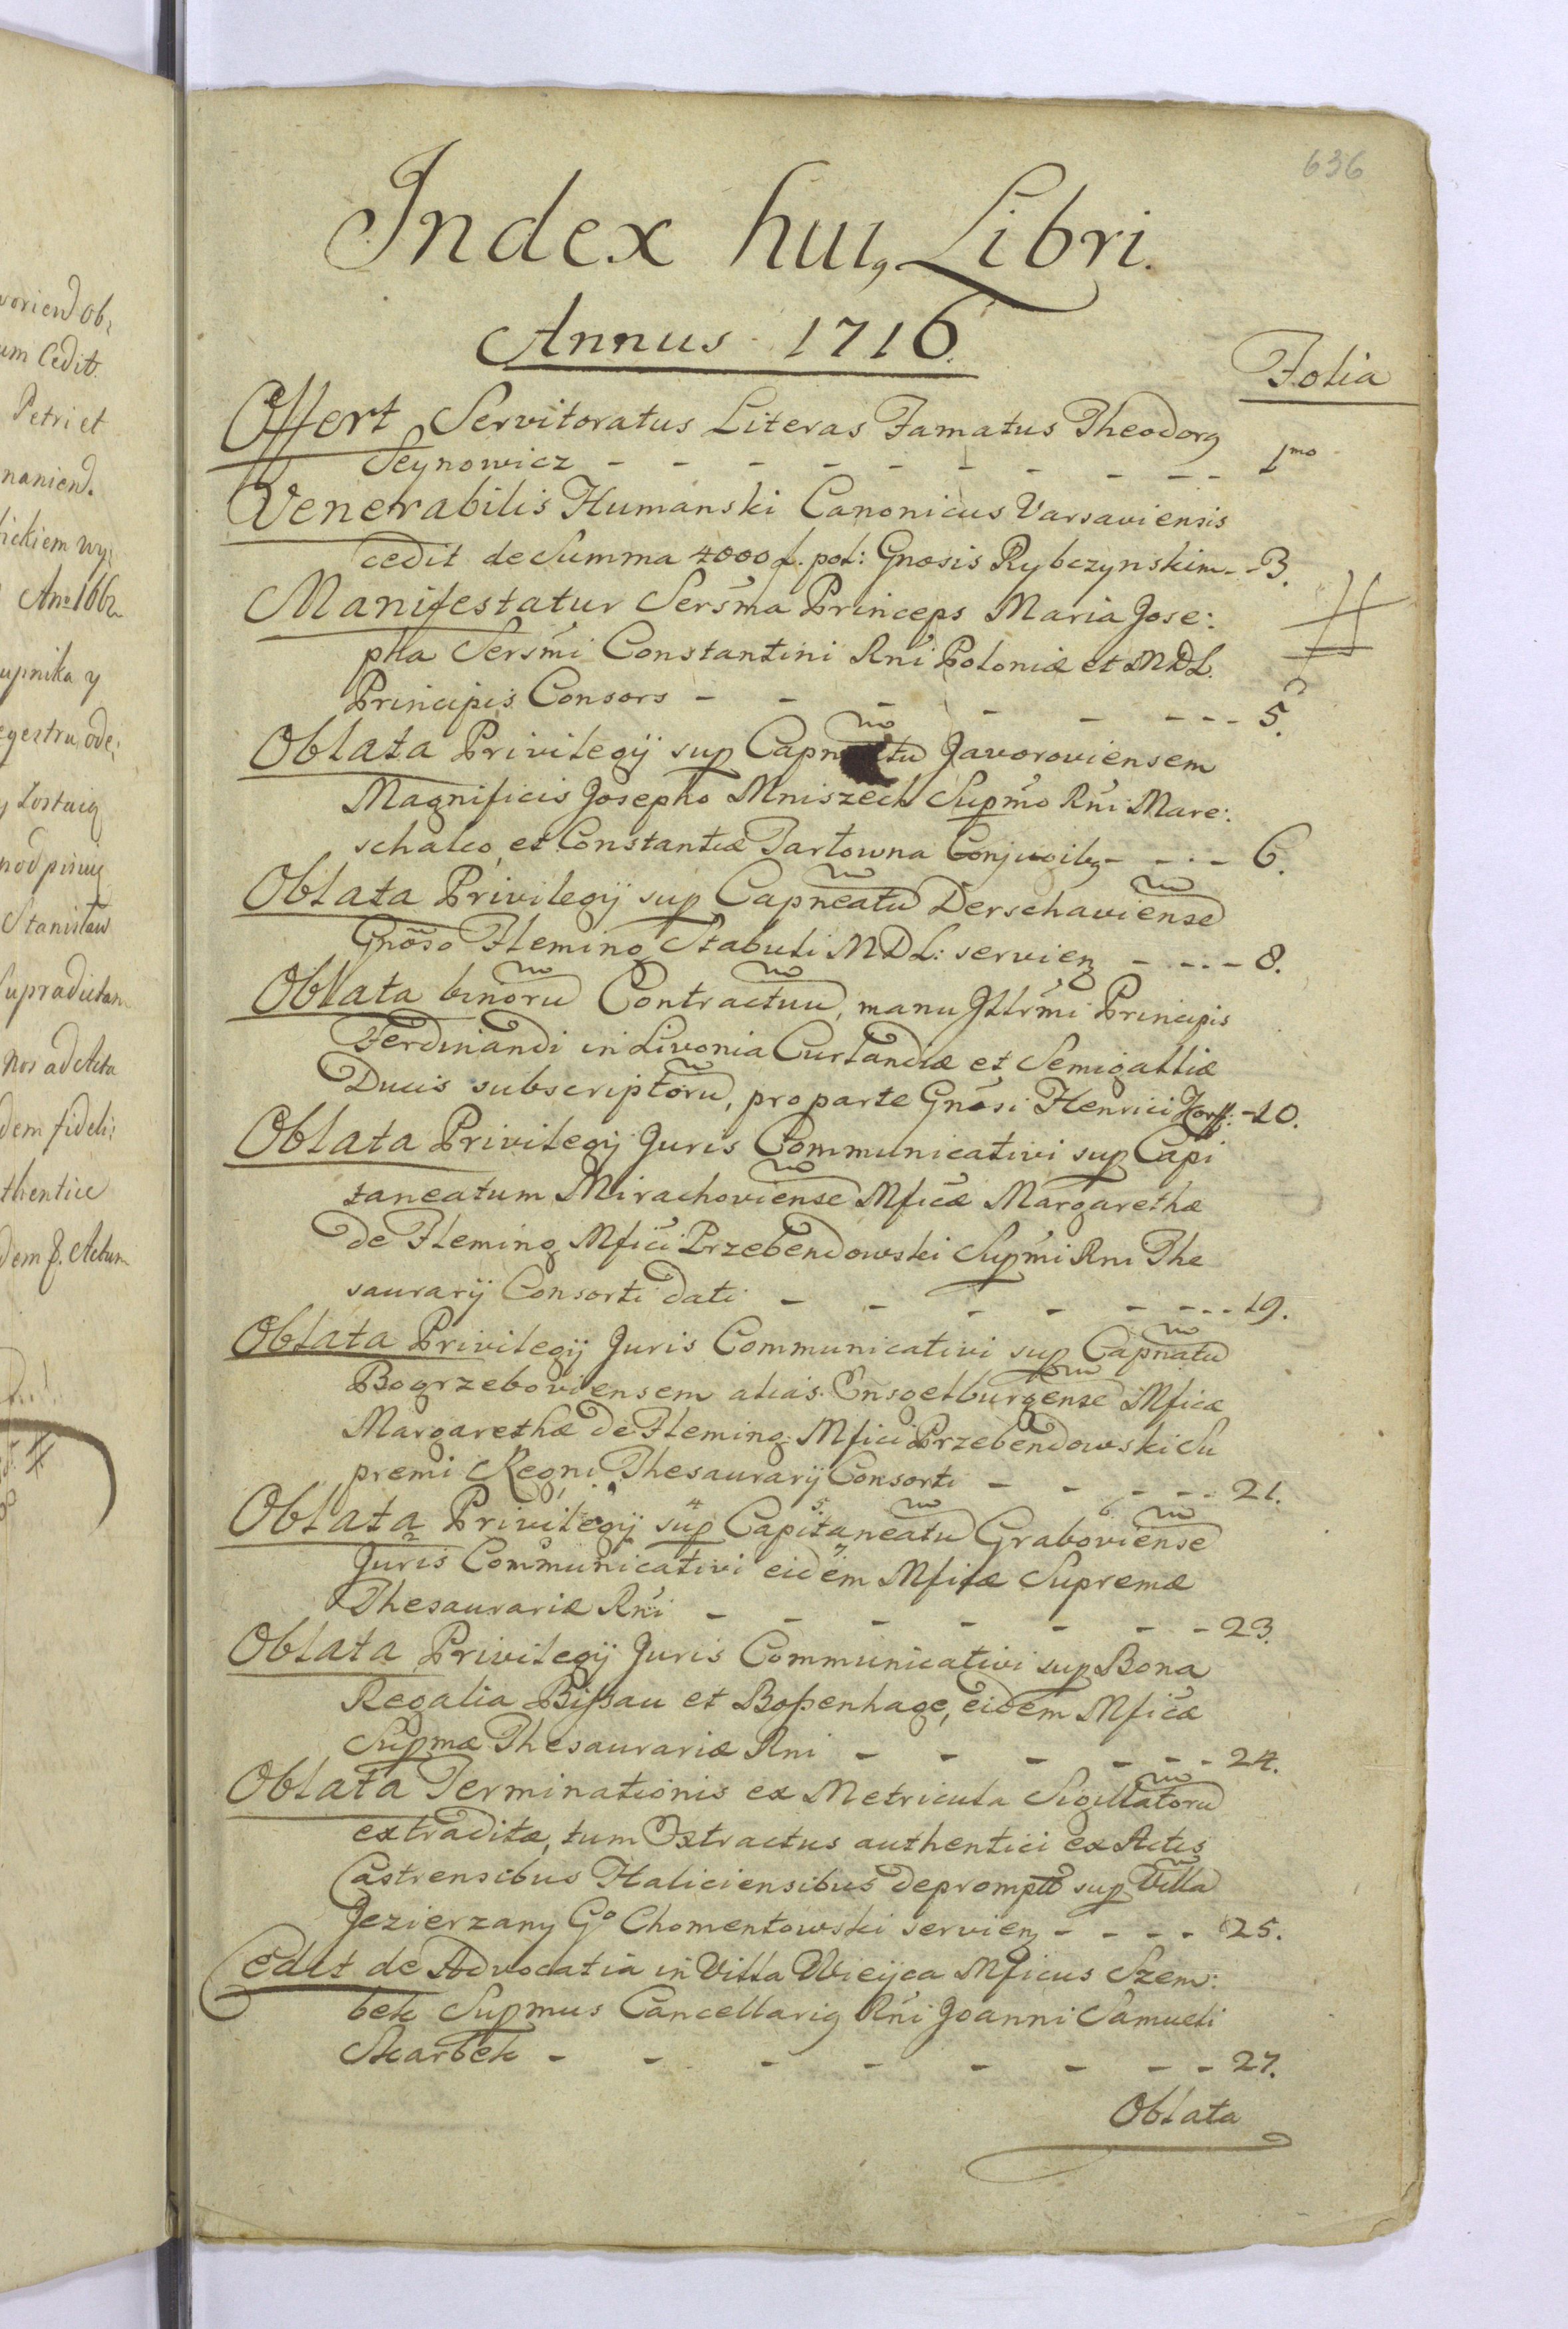 636
Index huiꝰ Libri.
Annus 1716.
Folia
Offert Servitoratus Literas Famatus Theodorꝰ
Seynowicz - - - - - - - - - - 1mo
Venerabilis Humanski Canonicus Varsaviensis
cedit de Summa 4000 f. pol: Gnosis Rybczynskim - - 3.
Manifestatur Sersma Princeps Maria Jose:
pha Sersmi Constantini Rni Poloniæ et MDL.
Principis Consors - - - - - - - - 5.
Oblata Privilegij sup Capneatu Javoroviensem
Magnificis Josepho Mniszech Supmo Rni Mare:
schalco, et Constantiæ Tarłowna Conjugibꝰ - - - - 6.
Oblata Privilegij sup Capneatu Derschaviense
Gnoso Fleming Stabuli MDL: servienꝭ - - - - 8.
Oblata binoru Contractuu, manu Jllrmi Principis
Ferdinandi in Livonia Curlandiæ et Semigalliæ
Ducis subscriptoru, pro parte Gnosi Henrici - 10.
Oblata Privilegij Juris Communicativi sup Capi
taneatum Mirachoviense Mficæ Margarethæ
de Fleming Mfici Przebendowski Supmi Rni The
saurarij Consorti dati - - - - - - - - 19.
Oblata Privilegij Juris Communicativi sup Capnatu
Bogrzeboviensem alias Ensgelburgense Mficæ
Margarethæ de Fleming Mfici Przebendowski Su
premi Regni Thesaurarij Consorti - - - - - 21.
Oblata Privilegij sup Capitaneatu Graboviense
Juris Communicativi eidem Mficæ Supremæ
Thesaurariæ Rni - - - - - - - 23.
Oblata Privilegij Juris Communicativi sup Bona
Regalia Bißau et Boßenhage, eidem Mficæ
Supmæ Thesaurariæ Rni - - - - - - 24.
Oblata Terminationis ex Metricula Sigillatoru
extraditæ, tum Extractus authentici ex Actis
Castrensibus Haliciensibus deprompti sup Villa
Jezierzany Go Chomentowski servienꝭ - - - - 25.
Cedit de Advocatia in Villa Wieyca Mficus Szem:
bek Supmus Cancellariꝰ Rni Joanni Samueli
Skarbek - - - - - - - - 27.
Oblata